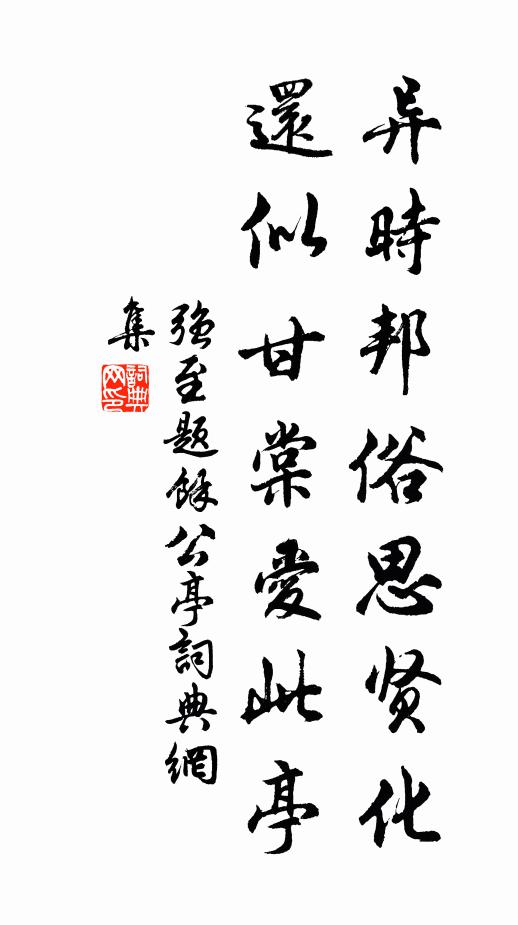 异時邦俗思贤化
還似甘棠愛此亭
強至題餘公亭詞典網
集
詞典
网印